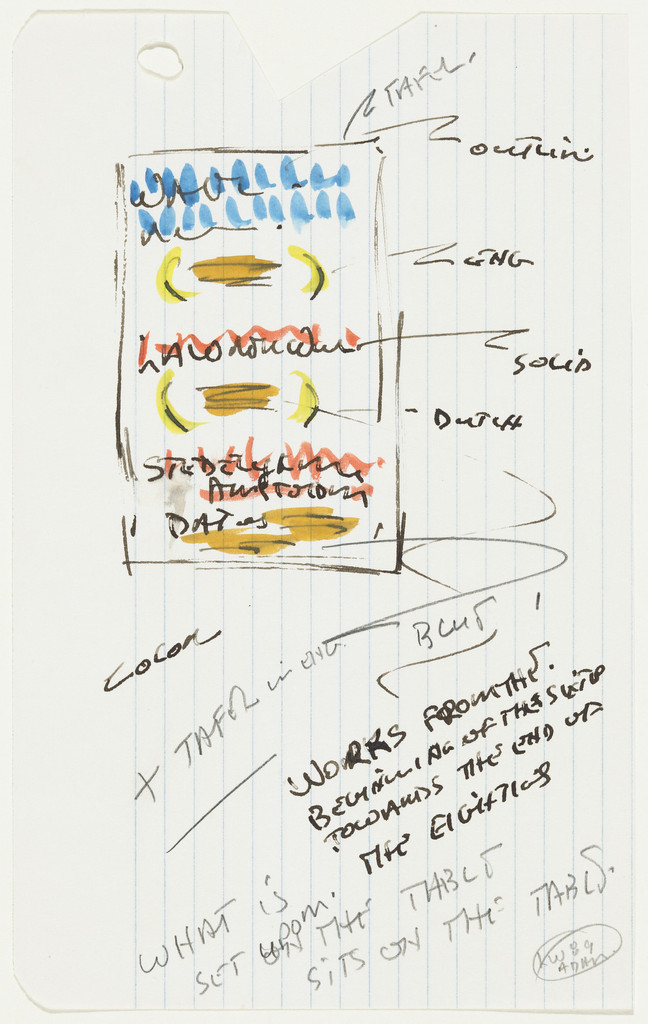 TAFEL.
OUTLIN
ENG
SOLID
DUTCH
STEDELIJK
DATES
COLOR
BLUE
X TAFEL IN ENG.
WORKS FROM THE.
BEGINNING OF THE SIXTIES
TOWARDS THE END OF
THE EIGHTIES
WHAT IS
SET UPON.
ON THE TABLE
SITS ON THE TABLE.
LW 89